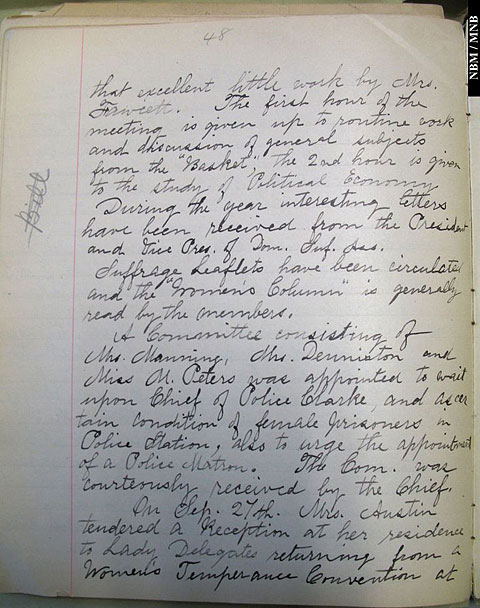 48
NBM / MNB
that excellent little work by Mrs.
Fawcett. The first hour of the
meeting is given up to routine work
and discussion of general subjects
from the "Basket". The 2nd hour is given
to the study of Political Economy
During the year interesting letters
have been received from the President
and Vice Pres. of Dom. Suf. Ass.
Suffrage Leaflets have been circulated
and the "Women's Column" is generally
read by the members.
A Committee consisting of
Mrs. Manning, Mrs. Denniston and
Miss M. Peters was appointed to wait
upon Chief of Police Clarke, and ascer
tain condition of female prisoners in
Police Station, also to urge the appointment
of a Police Matron. The Com. was
courteously received by the Chief.
On Sep. 27th. Mrs. Austin
tendered a Reception at her residence
to Lady Delegates returning from a
Women's Temperance Convention at